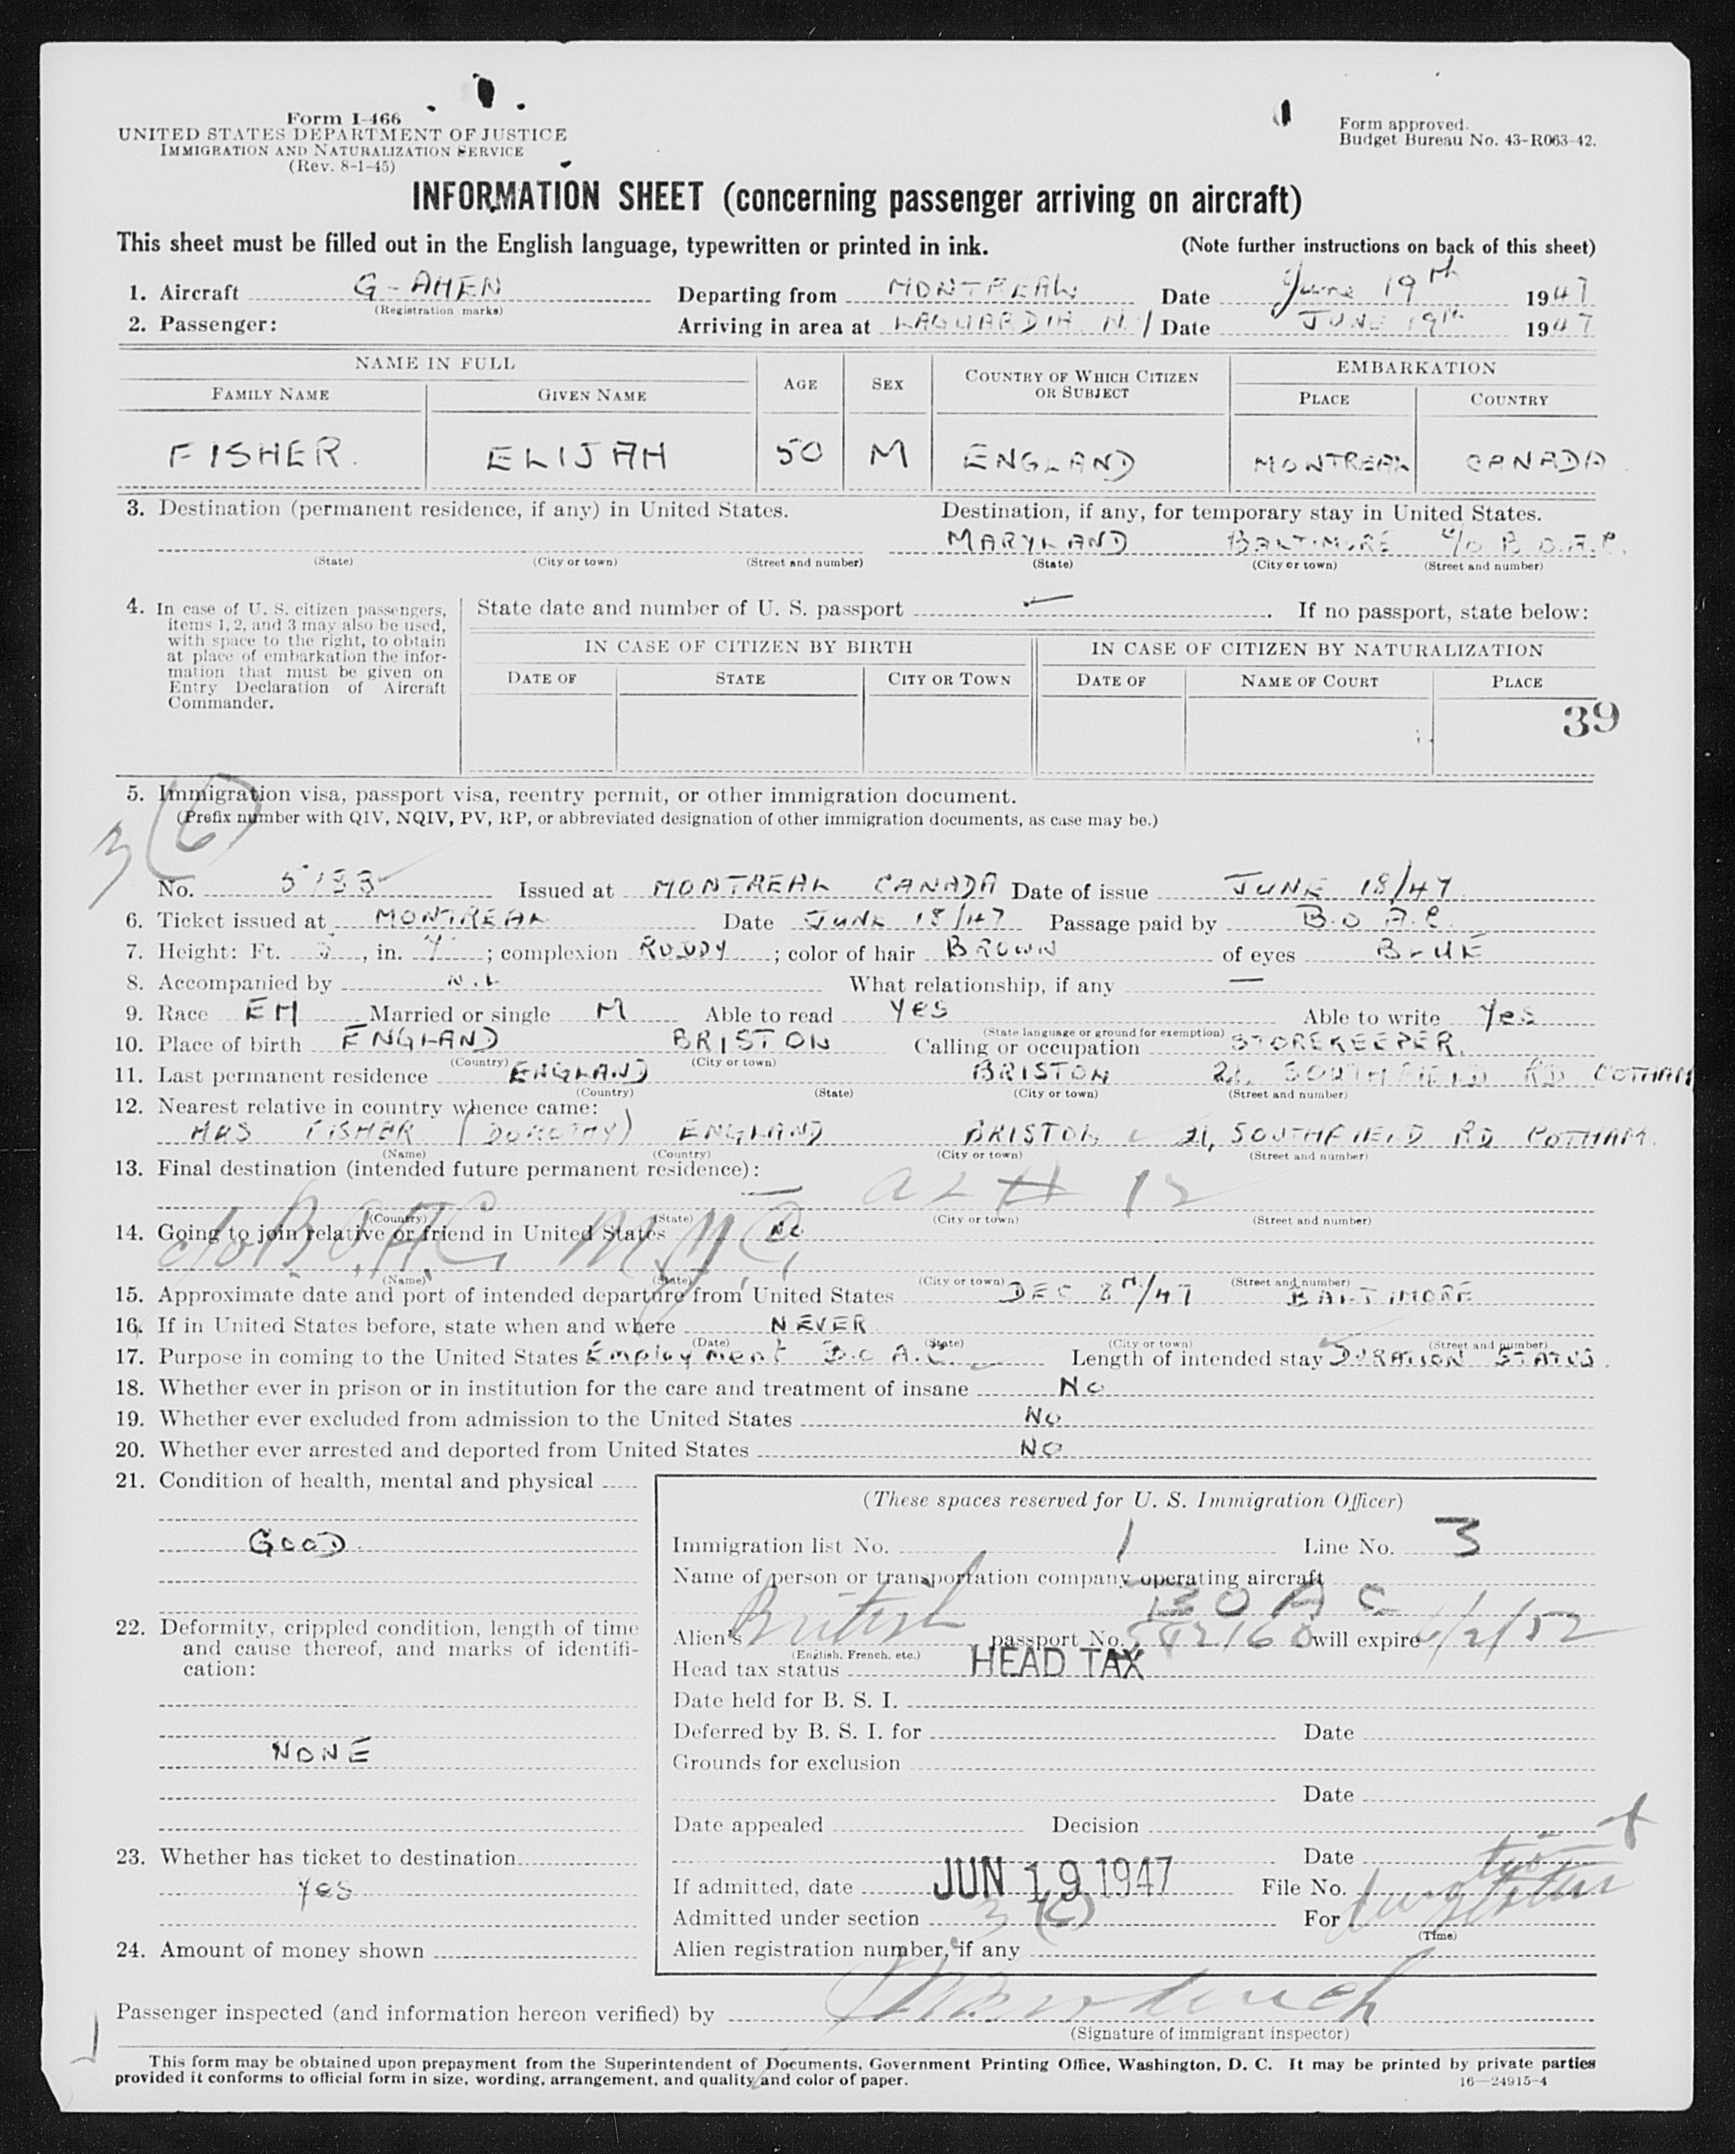 Form I-466
UNITED STATES DEPARTMENT OF JUSTICE
IMMIGRATION AND NATURALIZATION SERVICE
(Rev. 8-1-45)
Form approved.
Budget Bureau No. 43-R063-42.
INFORMATION SHEET (concerning passenger arriving on aircraft)
This sheet must be filled out in the English language, typewritten or printed in ink. (Note further instructions on back of this sheet)
1. Aircraft G-AHEN Departing from MONTREAL Date June 19th 1947
(Registration marks)
2. Passenger: Arriving in area at LAGUARDIA N.Y Date JUNE 19th 1947
NAME IN FULL AGE SEX COUNTRY OF WHICH CITIZEN OR SUBJECT EMBARKATION
FAMILY NAME GIVEN NAME PLACE COUNTRY
FISHER. ELIJAH 50 M ENGLAND MONTREAL CANADA
3. Destination (permanent residence, if any) in United States. Destination, if any, for temporary stay in United States.
MARYLAND BALTIMORE c/o B.O.A.C.
(State) (City or town) (Street and number) (State) (City or town) (Street and number)
4. In case of U. S. citizen passengers, items 1, 2, and 3 may also be used, with space to the right, to obtain at place of embarkation the information that must be given on Entry Declaration of Aircraft Commander.
State date and number of U. S. passport — . If no passport, state below:
IN CASE OF CITIZEN BY BIRTH IN CASE OF CITIZEN BY NATURALIZATION
DATE OF STATE CITY OR TOWN DATE OF NAME OF COURT PLACE
39
5. Immigration visa, passport visa, reentry permit, or other immigration document.
(Prefix number with QIV, NQIV, PV, RP, or abbreviated designation of other immigration documents, as case may be.)
No. 5133 Issued at MONTREAL CANADA Date of issue JUNE 18/47
6. Ticket issued at MONTREAL Date JUNE 18/47 Passage paid by B.O.A.C.
7. Height: Ft. 5, in. ; complexion RUDDY ; color of hair BROWN of eyes BLUE
8. Accompanied by What relationship, if any —
9. Race Married or single M Able to read yes Able to write Yes
(State language or ground for exemption)
10. Place of birth ENGLAND BRISTOL Calling or occupation STOREKEEPER.
(Country) (City or town)
11. Last permanent residence ENGLAND BRISTOL 21, SOUTHFIELD RD COTHAM
(Country) (State) (City or town) (Street and number)
12. Nearest relative in country whence came:
MRS FISHER (DOROTHY) ENGLAND BRISTOL 21, SOUTHFIELD RD COTHAM.
(Name) (Country) (City or town) (Street and number)
13. Final destination (intended future permanent residence):
(Country) (State) (City or town) (Street and number)
14. Going to join relative or friend in United States No
c/o B.O.A.C. N.Y.C.
(Name) (State) (City or town) (Street and number)
15. Approximate date and port of intended departure from United States DEC 8th/47 BALTIMORE
16. If in United States before, state when and where NEVER
(Date) (State) (City or town) (Street and number)
17. Purpose in coming to the United States Employment B.O.A.C. Length of intended stay DURATION STATUS.
18. Whether ever in prison or in institution for the care and treatment of insane No
19. Whether ever excluded from admission to the United States No
20. Whether ever arrested and deported from United States NO
21. Condition of health, mental and physical
GOOD.
22. Deformity, crippled condition, length of time and cause thereof, and marks of identification:
NONE
23. Whether has ticket to destination
yes
24. Amount of money shown
(These spaces reserved for U. S. Immigration Officer)
Immigration list No. 1 Line No. 3
Name of person or transportation company operating aircraft
BOAC
Alien's British passport No. will expire 4/2/52
(English, French, etc.)
Head tax status HEAD TAX
Date held for B. S. I.
Deferred by B. S. I. for Date
Grounds for exclusion
Date
Date appealed Decision
Date
If admitted, date JUN 19 1947 File No.
Admitted under section 3 (C) For
(Time)
Alien registration number, if any
Passenger inspected (and information hereon verified) by
(Signature of immigrant inspector)
This form may be obtained upon prepayment from the Superintendent of Documents, Government Printing Office, Washington, D. C. It may be printed by private parties
provided it conforms to official form in size, wording, arrangement, and quality and color of paper.
16—24915-4